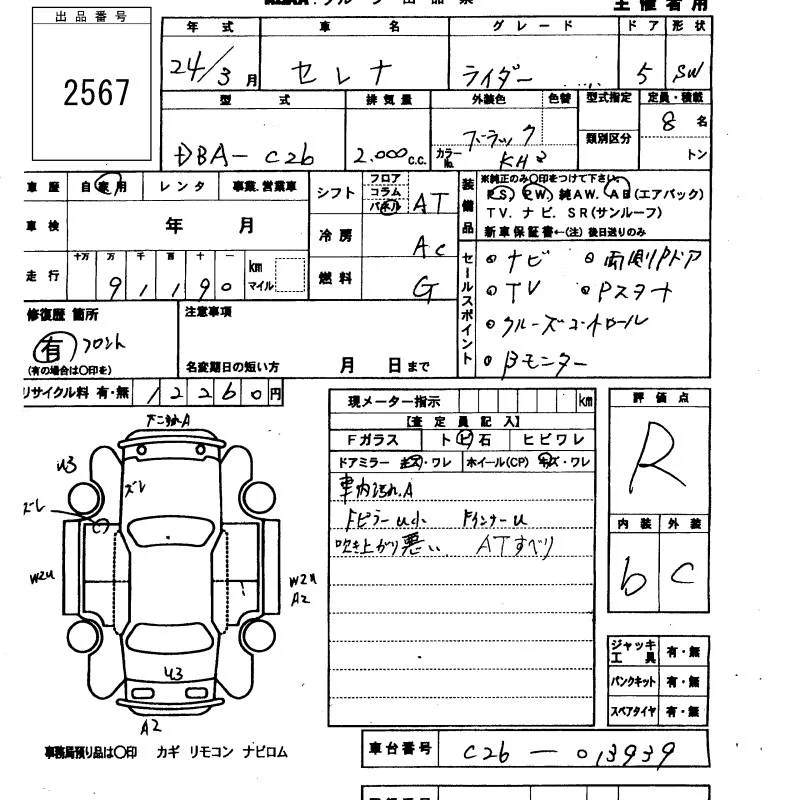 出品番号
2567
主催者用
年式 車名 グレード ドア 形状
24/3月 セレナ ライダー 5 SW
型式 排気量 外装色 色替 型式指定 定員・積載
類別区分
8名
DBA-C26 2.000c.c. ブラック カラーNo. KH3 トン
車歴 自家用 レンタ 事業.営業車
車検 年 月
走行 十万 万 千 百 十 一 km マイル
91190
シフト フロア コラム パネル AT
冷房 AC
燃料 G
装備品 ※純正のみ〇印をつけて下さい。
P.S. P.W. 純AW. AB(エアバック)
TV. ナビ. SR(サンルーフ)
新車保証書←(注)後日送りのみ
セールスポイント
◦ナビ ◦両側Pドア
◦TV ◦Pスタート
◦クルーズコントロール
◦Bモニター
修復歴 箇所
有 フロント
(有の場合は〇印を)
注意事項
名変期日の短い方 月 日まで
リサイクル料 有・無 12260円
現メーター指示 km
【査定員記入】
Fガラス トビ石 ヒビワレ
ドアミラー キズ・ワレ ホイール(CP) キズ・ワレ
車内汚れA
FピラーU小 FインナーU
吹き上がり悪い ATすべり
評価点
R
内装 外装
b C
ジャッキ工具 有・無
パンクキット 有・無
スペアタイヤ 有・無
U3
ズレ
ズレ
W2U
W2U
A2
U3
A2
事務局預り品は〇印 カギ リモコン ナビロム
車台番号 C26-013939